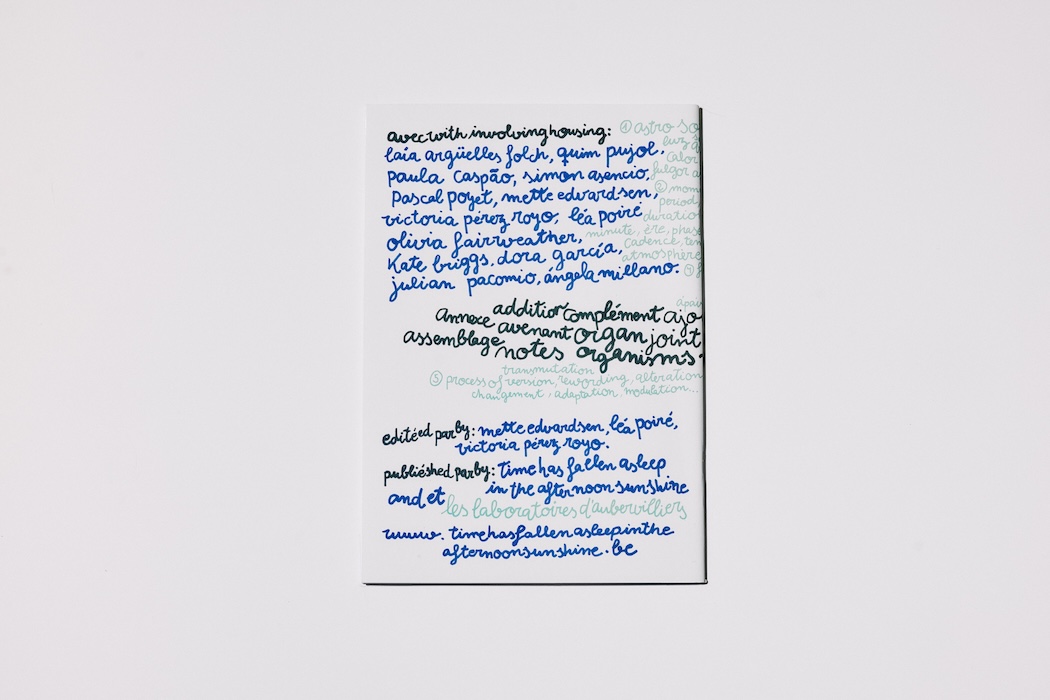 avec with involving housing: ① astro so
laia argüelles folch, quim pujol, luz
paula caspão, simon asencio, calor
fulgor a
pascal poyet, mette edvardsen, ② mom
period
victoria pérez royo, léa poiré duratio
olivia fairweather, minute, ère, phase
kate briggs, dora garcía, cadence, ten
atmosphère
julian pacomio, ángela millano. ③
annexe addition complément ajo
assemblage avenant organ joint
notes organisms
transmutation
⑤ process of version, rewording, alteration
changement, adaptation, modulation...
editéed parby: mette edvardsen, léa poiré,
victoria pérez royo.
publiéshed parby: time has fallen asleep
in the afternoon sunshine
and et les laboratoires d'aubervilliers
www. timehasfallenasleepinthe
afternoonsunshine.be